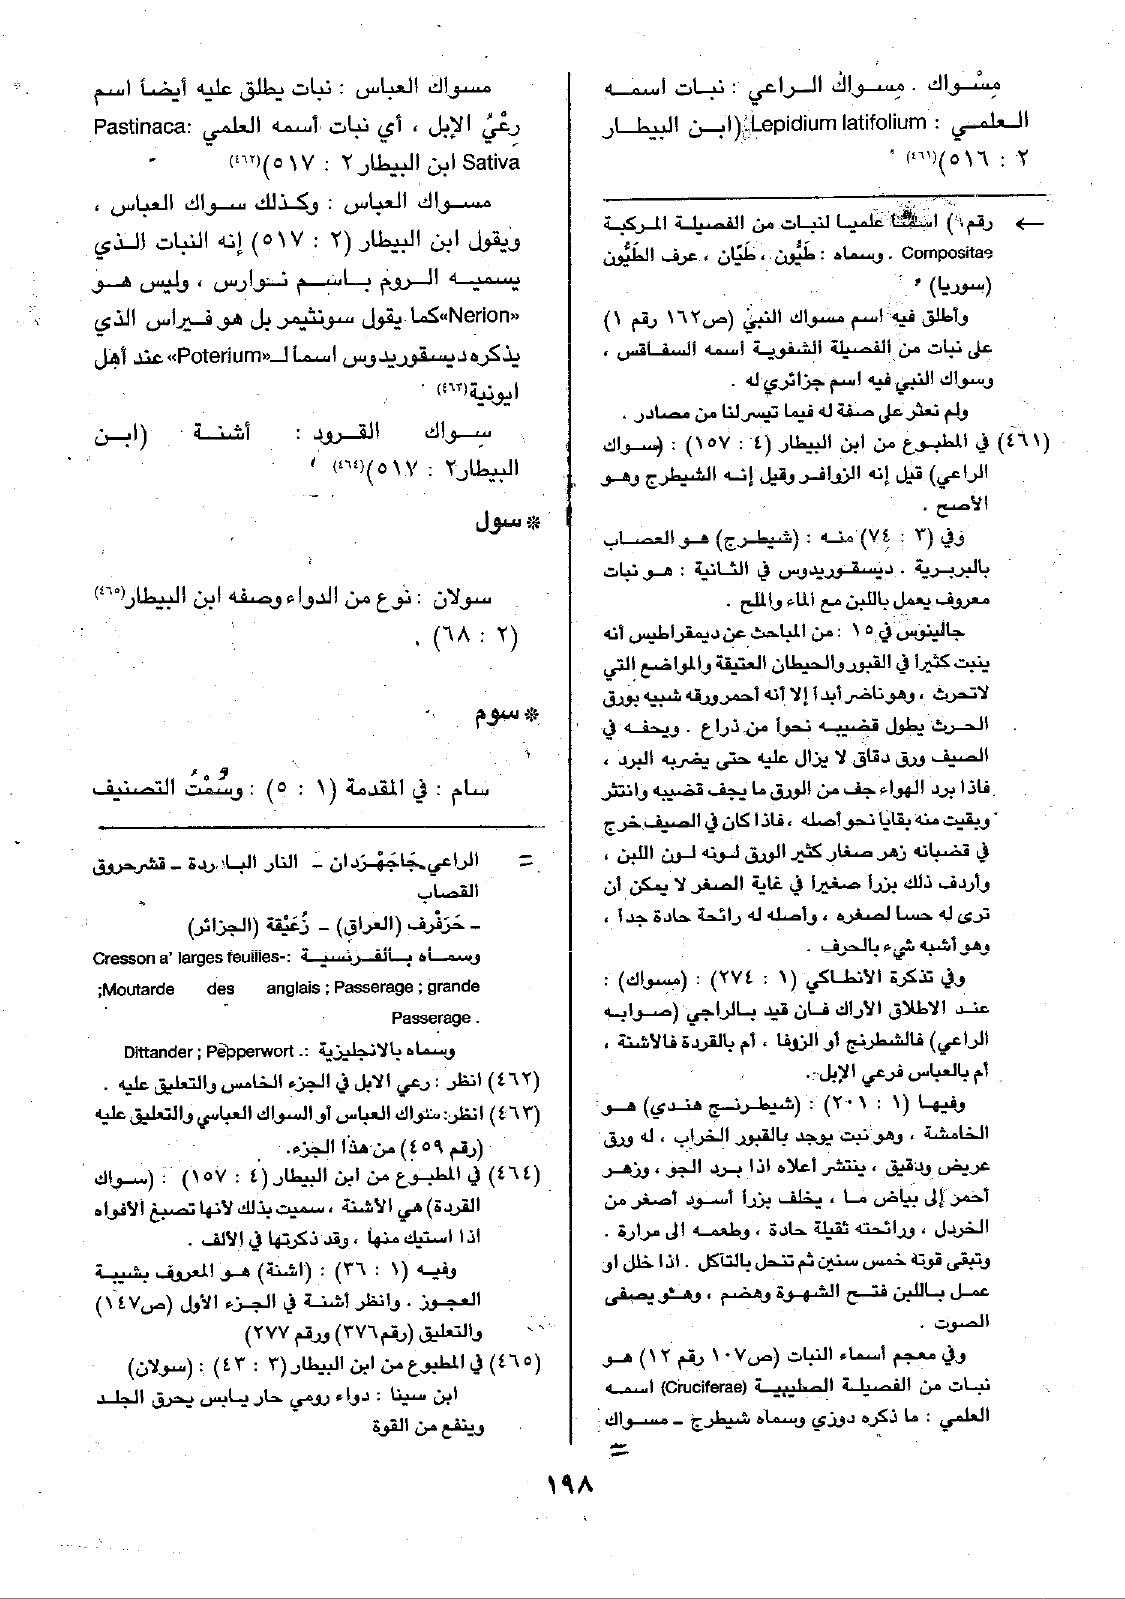 مِسْواك . مِسْواك الراعي : نبات اسمه
العلمي : Lepidium latifolium (ابن البيطار
٢ : ٥١٦)(٤٦١)
← رقم ١) اسما علميا لنبات من الفصيلة المركبة
Compositae . وسماه : طَيُّون ، طَيّان ، عرف الطَيُّون
(سوريا)
وأطلق فيه اسم مسواك النبي (ص١٦٢ رقم ١)
على نبات من الفصيلة الشفوية أسمه السفاقس ،
وسواك النبي فيه اسم جزائري له .
ولم نعثر على صفة له فيما تيسر لنا من مصادر .
(٤٦١) في المطبوع من ابن البيطار (٤ : ١٥٧) : (سواك
الراعي) قيل إنه الزوافر وقيل إنه الشيطرج وهو
الأصح .
وفي (٣ : ٧٤) منه : (شيطرج) هو العصاب
بالبربرية . ديسقوريدوس في الثانية : هو نبات
معروف يعمل باللبن مع الماء والملح .
جالينوس في ١٥ : من المباحث عن ديمقراطيس أنه
ينبت كثيرا في القبور والحيطان العتيقة والمواضع التي
لاتحرث ، وهو ناضر أبداً إلا أنه أحمر ورقه شبيه بورق
الحرث يطول قضيبه نحواً من ذراع . ويحفه في
الصيف ورق دقاق لا يزال عليه حتى يضربه البرد ،
فاذا برد الهواء جف من الورق ما يجف قضيبه وانتثر
وبقيت منه بقايا نحو أصله ، فاذا كان في الصيف خرج
في قضبانه زهر صغار كثير الورق لونه لون اللبن ،
وأردف ذلك بزراً صغيراً في غاية الصغر لا يمكن أن
ترى له حسا لصغره ، وأصله له رائحة حادة جداً ،
وهو أشبه شيء بالحرف .
وفي تذكرة الأنطاكي (١ : ٢٧٤) : (مسواك) :
عند الاطلاق الأراك فان قيد بالراجي (صوابه
الراعي) فالشطرنج أو الزوفا ، أم بالقردة فالأشنة ،
أم بالعباس فرعي الإبل .
وفيها (١ : ٢٠١) : (شيطرنج هندي) هو
الخامشة ، وهو نبت يوجد بالقبور الخراب ، له ورق
عريض ودقيق ، ينتشر أعلاه اذا برد الجو ، وزهر
أحمر إلى بياض ما ، يخلف بزراً أسود أصغر من
الخردل ، ورائحته ثقيلة حادة ، وطعمه الى مرارة .
وتبقى قوته خمس سنين ثم تنحل بالتآكل . اذا خلل او
عمل باللبن فتح الشهوة وهضم ، وهو يصفى
الصوت .
وفي معجم أسماء النبات (ص١٠٧ رقم ١٢) هو
نبات من الفصيلة الصليبية (Cruciferae) اسمه
العلمي : ما ذكره دوزي وسماه شيطرج – مسواك
=
مسواك العباس : نبات يطلق عليه أيضاً اسم
رعْيُ الإبل ، أي نبات أسمه العلمي :Pastinaca
Sativa ابن البيطار ٢ : ٥١٧)(٤٦٢)
مسواك العباس : وكذلك سواك العباس ،
ويقول ابن البيطار (٢ : ٥١٧) إنه النبات الذي
يسميه الروم باسم نوارس ، وليس هو
«Nerion» كما يقول سونثيمر بل هو فيراس الذي
يذكره ديسقوريدوس اسما لـ «Poterium» عند أهل
ايونية(٤٦٣)
سواك القرود : أشنة (ابن
البيطار٢ : ٥١٧)(٤٦٤)
* سول
سولان : نوع من الدواء وصفه ابن البيطار(٤٦٥)
(٢ : ٦٨) .
* سوم
سام : في المقدمة (١ : ٥) : وسُمْتُ التصنيف
= الراعي جَاجَهْرَدان – النار الباردة – قشرحروق
القصاب
– حَرَفْرف (العراق) – زُعَيْقة (الجزائر)
وسماه بالفرنسية :-Cresson a' larges feuilles
;Moutarde des anglais ; Passerage ; grande
Passerage .
وسماه بالانجليزية :. Dittander ; Pepperwort
(٤٦٢) انظر : رعي الابل في الجزء الخامس والتعليق عليه .
(٤٦٣) انظر : سواك العباس أو السواك العباسي والتعليق عليه
(رقم ٤٥٩) من هذا الجزء.
(٤٦٤) في المطبوع من ابن البيطار (٤ : ١٥٧) : (سواك
القردة) هي الأشنة ، سميت بذلك لأنها تصبغ الأفواه
اذا استيك منها ، وقد ذكرتها في الألف .
وفيه (١ : ٣٦) : (اشنة) هو المعروف بشيبة
العجوز . وانظر أشنة في الجزء الأول (ص١٤٧)
والتعليق (رقم ٣٧٦) ورقم ٢٧٧)
(٤٦٥) في المطبوع من ابن البيطار (٣ : ٤٣) : (سولان)
ابن سينا : دواء رومي حار يابس يحرق الجلد
وينفع من القوة
١٩٨